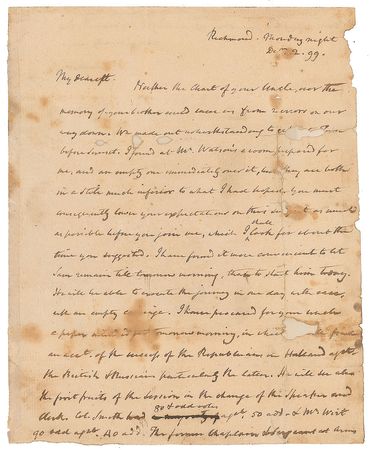 Richmond. Monday night
Dec. 2. 99.
My dearest. Neither the chart of your Uncle, nor the
memory of your brother could save us from 2 errors on our
way down. We made out notwithstanding to
before sunset. I found at Mr. Watson's a room prepared for
me, and an empty one immediately over it, but they are both
in a stile much inferior to what I had hoped. You must
consequently lower your expectations on this as much
as possible before you join me, which I shall look for about the
time you suggested. I have found it more convenient to let
Sam remain till tomorrow morning, than to start him today.
He will be able to execute the journey in one day with ease,
with an empty carriage. I have procured for your uncle
a paper tomorrow morning, in which
an acct. of the success of the Republicans in Holland agst.
the British & Russians particularly the latter. He will see also
the first fruits of the Session in the change of the Speaker and
clerk. Col. Smith had 80 & odd votes agst. 50 add. & Mr. Wirt
90 odd agst. 40 add. The former Chaplain & Sergeant at Arms